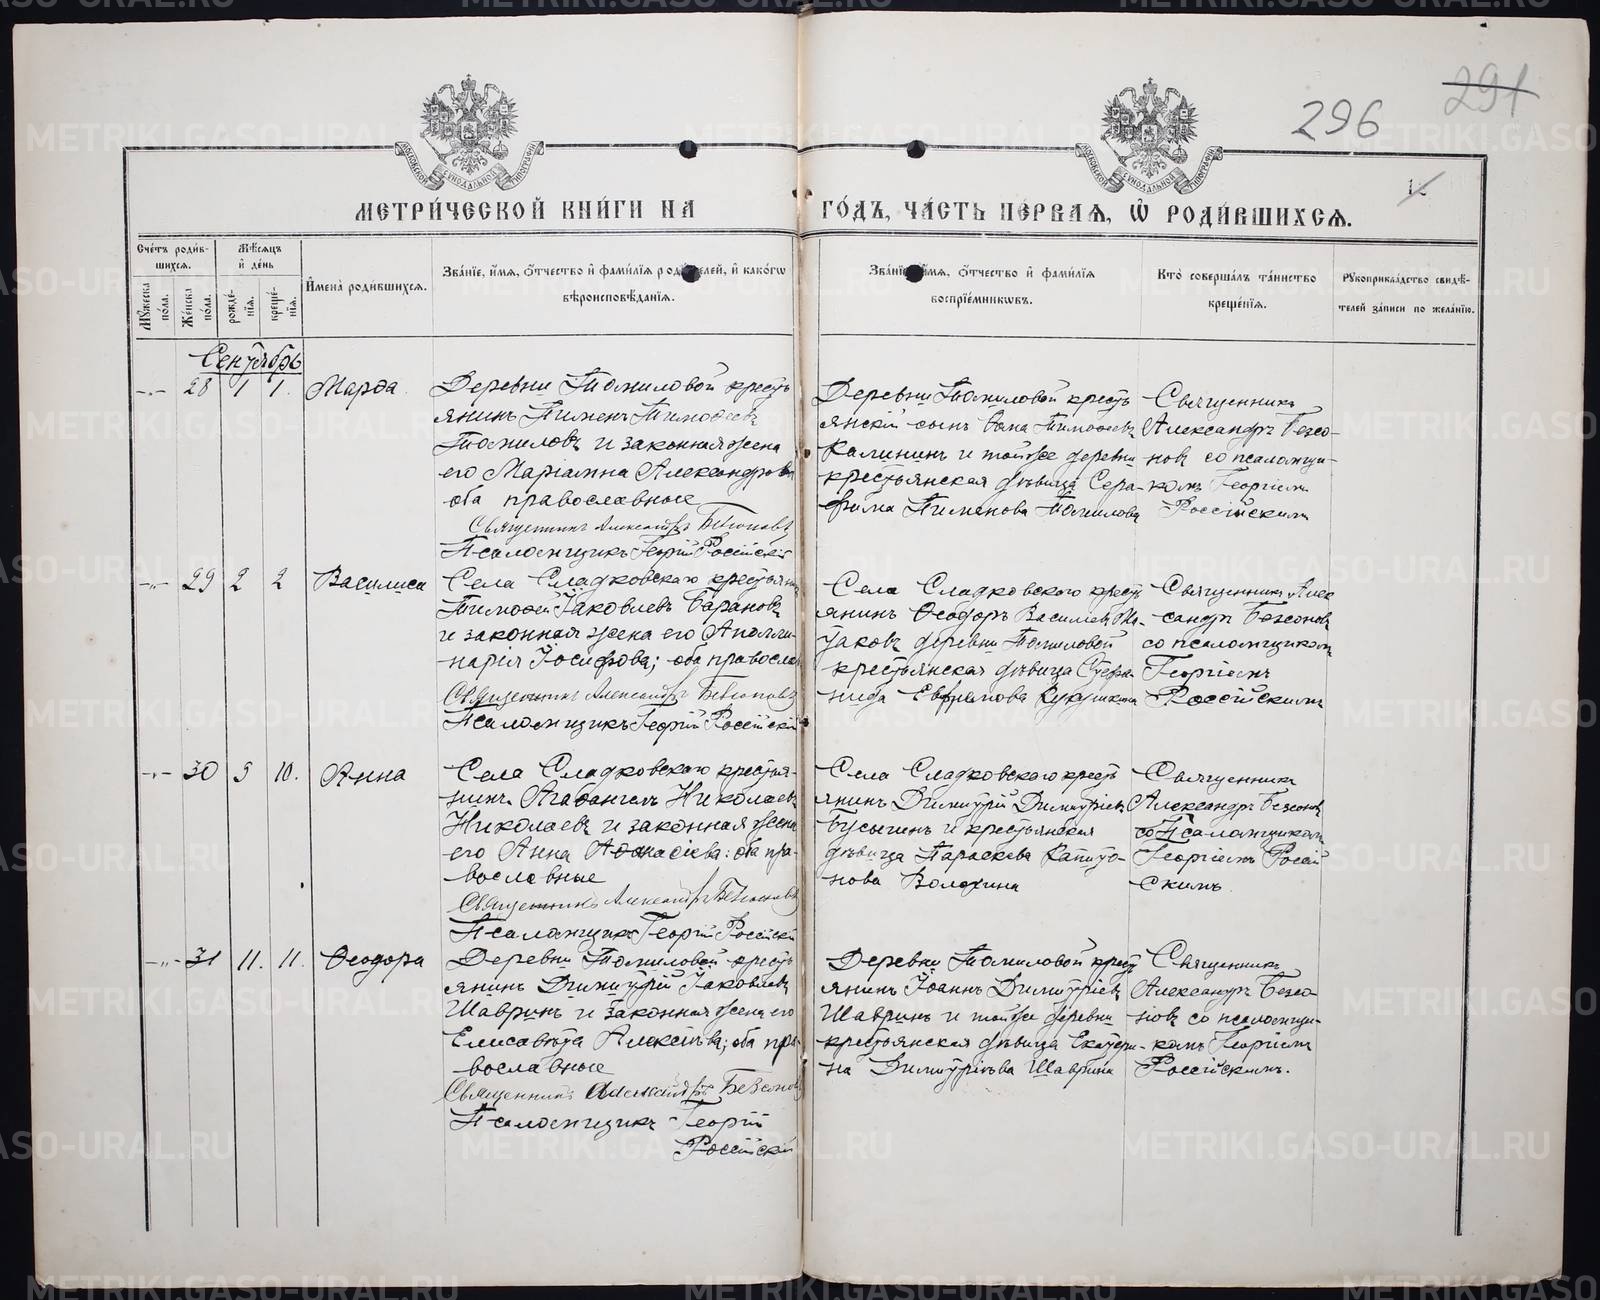 296
291
МЕТРИ́ЧЕСКОЙ КНИ́ГИ НА
ГО́ДЪ, ЧА́СТЬ ПЕ́РВАЯ, Ѽ РОДИ́ВШИХСЯ.
Сче́тъ роди́в-
шихся.
Мѣ́сяцъ
и҆ де́нь
Мꙋ́жеска
по́ла.
Же́нска
по́ла.
рожде́-
нїя.
креще́-
нїя.
И҆мена̀ роди́вшихся.
Зва́нїе, и҆́мя, ѻ҆́тчество и҆ фами́лїя родителей, и҆ како́гѡ
вѣроисповѣ́данїя.
Зва́нїе и҆́мя, ѻ҆́тчество и҆ фами́лїя
воспрїе́мникѡвъ.
Кто̀ соверша́лъ та́инство
креще́нїя.
Рꙋкоприкла́дство свидѣ́-
телей за́писи по жела́нїю.
Сентябрь
-„- 28 1 1. Марѳа
Деревни Томиловой кресть
янинъ Пименъ Тимоѳеевъ
Томиловъ и законная жена
его Маріамна Александрова
оба православные
Священникъ Александръ Безсоновъ
Псаломщикъ Георгій Россійскій
Деревни Томиловой кресть
янскій сынъ Тимоѳеевъ
Калининъ и тойже деревни
крестьянская дѣвица Сера-
фима Пименова Томилова
Священникъ
Александръ Безсо-
новъ со псаломщи-
комъ Георгіемъ
Россійскимъ
-„- 29 2 2 Василиса
Села Сладковскаго крестьянинъ
Тимоѳей Іаковлевъ Барановъ
и законная жена его Аполли-
нарія Іосифова; оба православ
Священникъ Александръ Безсоновъ
Псаломщикъ Георгій Россійскій
Села Сладковскаго кресть
янинъ Ѳеодоръ Василіевъ
деревни Томиловой
крестьянская дѣвица Стефа-
нида Евфремова Кукушкина
Священникъ Алек
сандръ Безсоновъ
со псаломщикомъ
Георгіемъ
Россійскимъ
-„- 30 9 10. Анна
Села Сладковскаго крестья-
нинъ Агаѳангелъ Николаевъ
Николаевъ и законная жена
его Анна Аѳанасіева: оба пра-
вославные
Священникъ Александръ Безсоновъ
Псаломщикъ Георгій Россійскій
Села Сладковскаго кресть
янинъ Димитрій Димитріевъ
Бусыгинъ и крестьянская
дѣвица Параскева Капито-
нова Волохина
Священникъ
Александръ Безсоновъ
со Псаломщикомъ
Георгіемъ Россій
скимъ.
-„- 31 11. 11. Ѳеодора
Деревни Томиловой кресть
янинъ Димитрій Іаковлевъ
Шавринъ и законная жена его
Елисавета Алексѣева; оба пра-
вославные
Священникъ Александръ Безсоновъ
Псаломщикъ Георгій
Россійскій
Деревни Томиловой кресть
янинъ Іоаннъ Димитріевъ
Шавринъ и тойже деревни
крестьянская дѣвица Екатери-
на Димитріева Шаврина
Священникъ
Александръ Безсо-
новъ со псаломщи-
комъ Георгіемъ
Россійскимъ.
METRIKI.GASO-URAL.RU